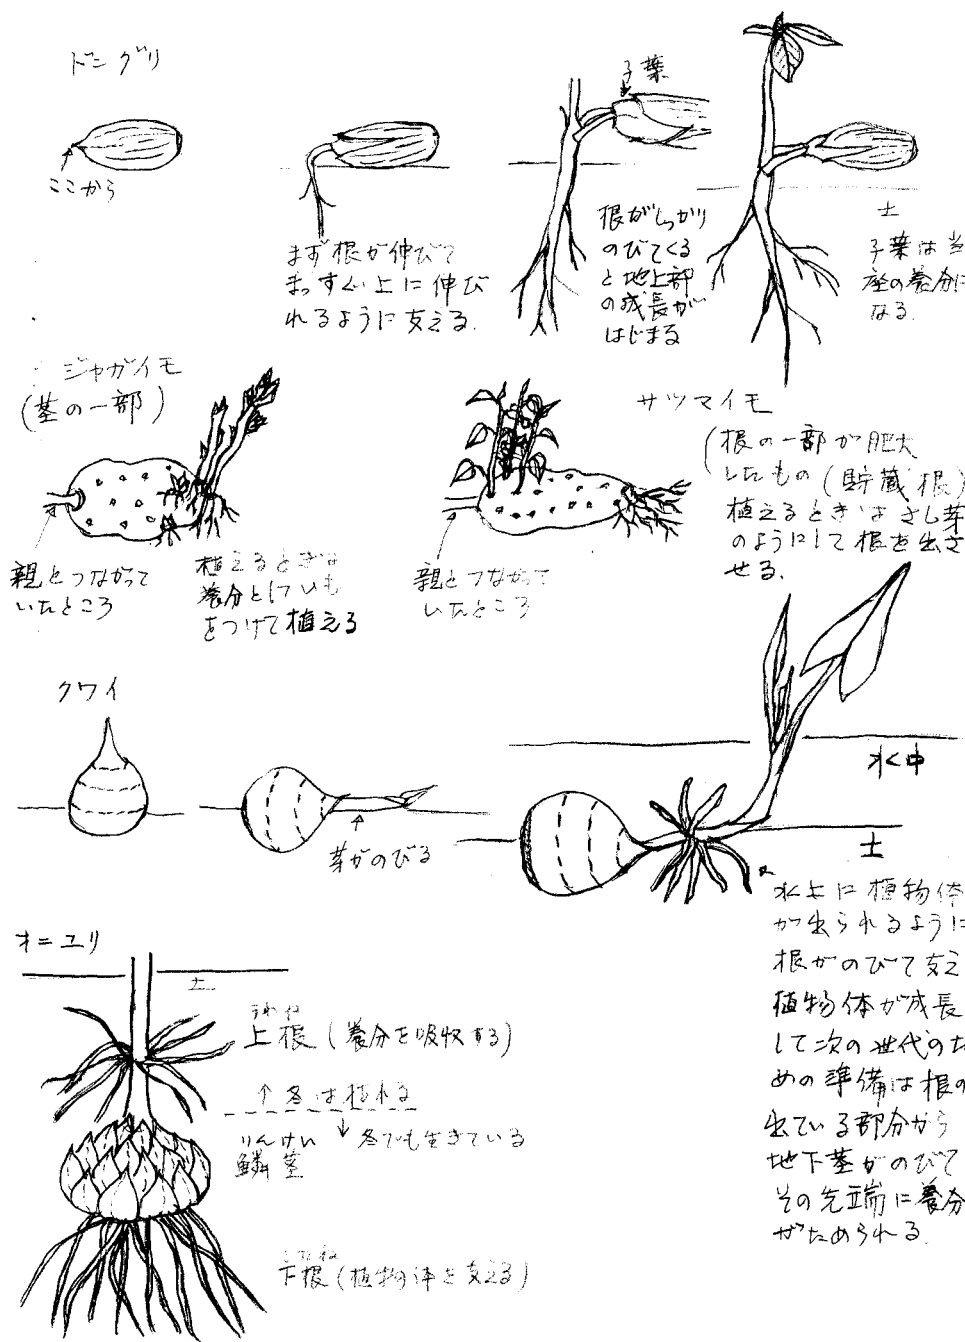 ドングリ
ここから
まず根が伸びて
まっすぐ上に伸び
れるように支える.
子葉
根がしっかり
のびてくる
と地上部
の成長が
はじまる
土
子葉は当
座の養分に
なる.
ジャガイモ
(茎の一部)
親とつながって
いたところ
植えるときは
養分としていも
をつけて植える
親とつながって
いたところ
サツマイモ
(根の一部が肥大
したもの(貯蔵根)
植えるときはさし芽
のようにして根を出さ
せる.
クワイ
芽がのびる
水中
土
水上に植物体
が出られるように
根がのびて支え
植物体が成長
して次の世代のた
めの準備は根の
出ている部分から
地下茎がのびて
その先端に養分
がためられる.
オニユリ
土
うわね
上根(養分を吸収する)
↑冬は枯れる
↓冬でも生きている
りんけい
鱗茎
したね
下根(植物体を支える)